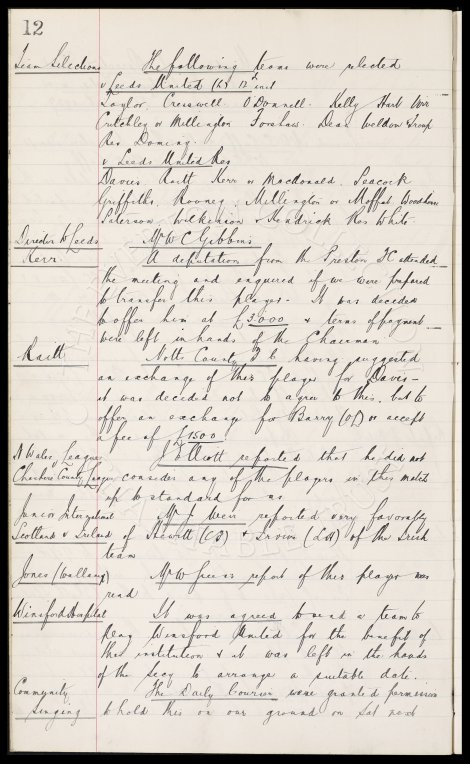 12
Team Selections The following teams were selected
v Leeds United (L) 12th inst
Taylor. Cresswell. O'Donnell. Kelly Hart Weir
Critchley or Millington Forshaw. Dean Weldon & Troup
Res Dominy.
v Leeds United Res
Davies Raitt Kerr or MacDonald. Peacock
Griffiths. Rooney. Millington or Moffat, Woodhouse
Paterson Wilkinson & Kendrick Res White.
Director to Leeds Mr W C Gibbins
Kerr. A deputation from the Preston FC attended
the meeting and enquired if we were prepared
to transfer this player - It was decided
to offer him at £3000 & terms of payment
were left in hands of the Chairman
Raitt Notts County F C having suggested
an exchange of this player for Davis -
it was decided not to agree to this, but to
offer an exchange for Barry (OL) or accept
a fee of £1500
N Wales League J Elliott reported that he did not
Cheshire County League consider any of the players in this match
up to standard for us
Junior International Mr J Weir reported very favorably
Scotland v Ireland of Hewitt (CB) & Irvine (LH) of the Irish
team
Jones (Wallasey) Mr W report of this player was
read
Winsford Hospital It was agreed to send a team to
play Winsford United for the benefit of
this institution & it was left in the hands
of the Secy to arrange a suitable date.
Community The Daily Courier were granted permission
Singing to hold this on our ground on Sat next